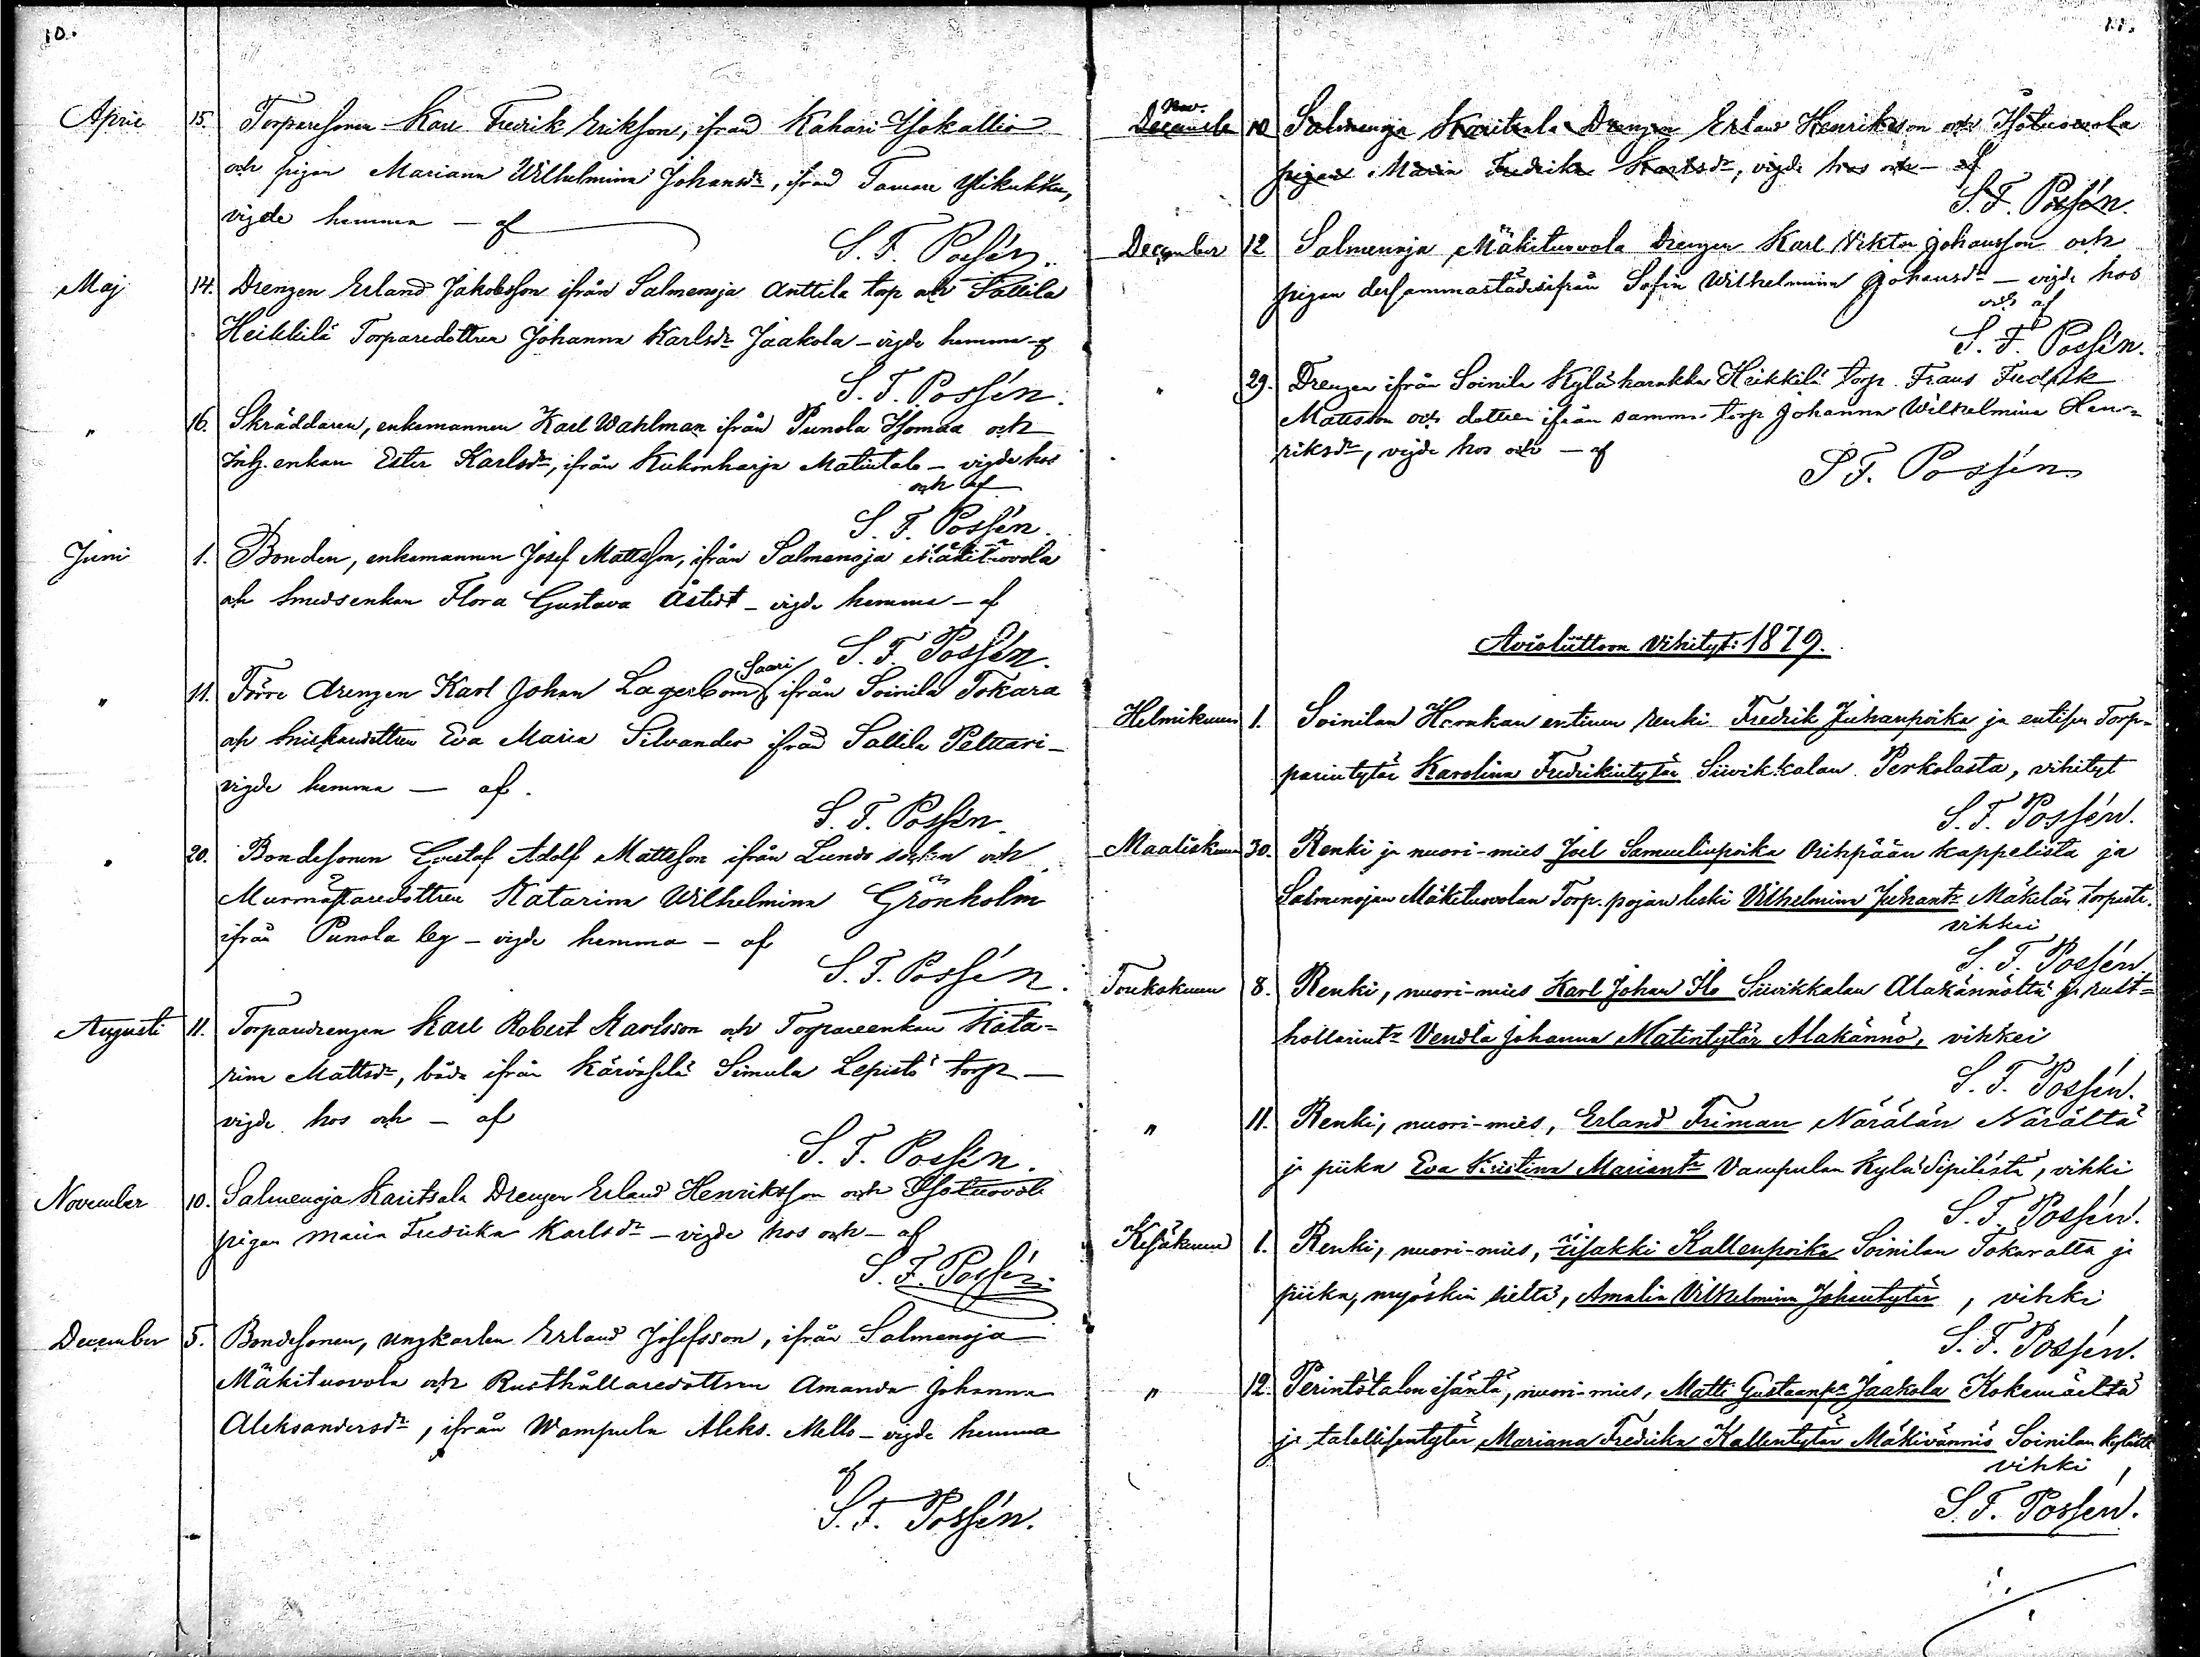 10.
April 15. Torparesonen Karl Fredrik Erikson, ifrån Kahari Ylikallio
och pigan Mariana Wilhelmina Johansdr, ifrån Tamare Ylikukku,
vigde hemma — af
S. F. Possén.
Maj 14. Drengen Erland Jakobsson ifrån Salmenoja Anttila torp och Sallila
Heikkilä Torparedottren Johanna Karlsdr Jaakola – vigde hemma – af
S. F. Possén.
" 16. Skräddaren, enkemannen Karl Wahlman ifrån Punola Isomaa och
Inh. enkan Ester Karlsdr, ifrån Kukonharja Matintalo – vigde hos
och af
S. F. Possén.
Juni 1. Bonden, enkemannen Josef Mattsson, ifrån Salmenoja Mäkituovola
och Smedsenkan Flora Gustava Åstedt – vigde hemma – af
S. F. Possén.
" 11. Förre drengen Karl Johan Lagerbom, Saari ifrån Soinila Tokara
och Snickaredottren Eva Maria Silvander ifrån Sallila Peltari –
vigde hemma — af.
S. F. Possén.
" 20. Bondesonen Gustaf Adolf Mattsson ifrån Lundo socken och
Murmästaredottren Katarina Wilhelmina Grönholm
ifrån Punola by – vigde hemma – af
S. F. Possén.
Augusti 11. Torparedrengen Karl Robert Karlsson och Torpareenkan Kata=
rina Mattsdr, båda ifrån Kärväselä Simula Lepistö torp —
vigde hos och – af
S. F. Possén.
November 10. Salmenoja Karitsala Drengen Erland Henriksson och Isotuovola
pigan Maria Fredrika Karlsdr – vigde hos och – af
S. F. Possén.
December 5. Bondesonen, ungkarlen Erland Josefsson, ifrån Salmenoja
Mäkituovola och Rusthållaredottren Amanda Johanna
Aleksandersdr, ifrån Wampula Aleks. Mello – vigde hemma
af
S. F. Possén.
11.
Nov.
December 10 Salmenoja Karitsala Drengen Erland Henriksson och Isotuovola
pigan Maria Fredrika Karlsdr, vigde hos och – af
S. F. Possén.
December 12 Salmenoja Mäkituovola Drengen Karl Viktor Johansson och
pigan dersammastädesifrån Sofia Wilhelmina Johansdr – vigde hos
och af
S. F. Possén.
" 29. Drengen ifrån Soinila Kyläharakka Heikkilä torp Frans Fredrik
Mattsson och dottren ifrån samma torp Johanna Wilhelmina Hen=
riksdr, vigde hos och – af
S F. Possén
Avioliittoon Vihityt: 1879.
Helmikuun 1. Soinilan Harakan entinen renki Fredrik Juhanpoika ja entisen Torp=
parintytär Karolina Fredrikintytär Siivikkalan Perkolasta, vihityt
S. F. Possén.
Maaliskuun 30. Renki ja nuori-mies Joel Samuelinpoika Oripään kappelista ja
Salmenojan Mäkituovolan Torp. pojan leski Vilhelmina Juhantr Mäkelän torpasta.
vihkei
S. F. Possén.
Toukokuun 8. Renki, nuori-mies Karl Johan Ilo Siivikkalan Alakännöltä ja rust=
hollarintr Vendla Johanna Matintytär Alakännö, vihkei
S. F. Possén.
" 11. Renki, nuori-mies, Erland Friman Närälän Närältä
ja piika Eva Kristina Mariantr Vampulan Kylä Sipilästä, vihki
S. F. Possén.
Kesäkuun 1. Renki, nuori-mies, Iisakki Kallenpoika Soinilan Tokaralta ja
piika, myöskin sieltä, Amalia Vilhelmina Johantytär, vihki
S. F. Possén.
" 12. Perintötalon isäntä, nuori-mies, Matti Gustaanp. Jaakola Kokemäeltä
ja talollisentytär Mariana Fredrika Kallentytär Mäkivännis Soinilan kylästä
vihki
S. F. Possén.